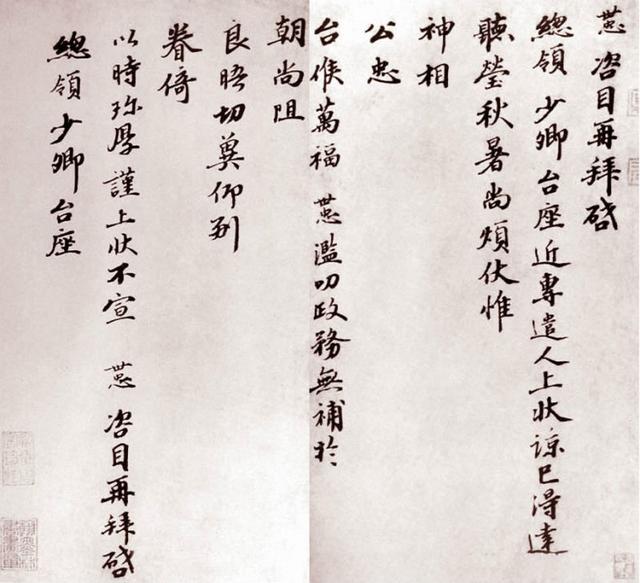 咨目再拜啓
總領 少卿 台座近專遣人上狀諒已得達
聽瑩秋暑尚煩伏惟
神相
公忠
台候萬福 濫叨政務無補於
朝尚阻
良晤切冀仰副
眷倚
以時珎厚謹上狀不宣 咨目再拜啓
總領 少卿 台座